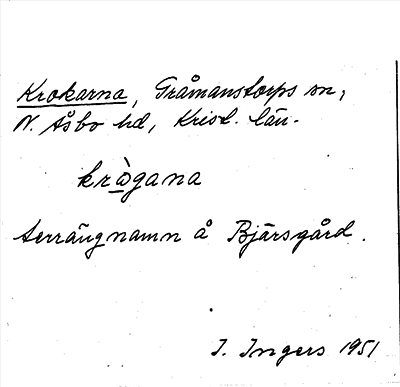 Krokarna, Gråmanstorps sn,
N. Åsbo hd, Krist. län.
krὼ̲gana
terrängnamn å Bjärsgård.
I. Ingers 1951